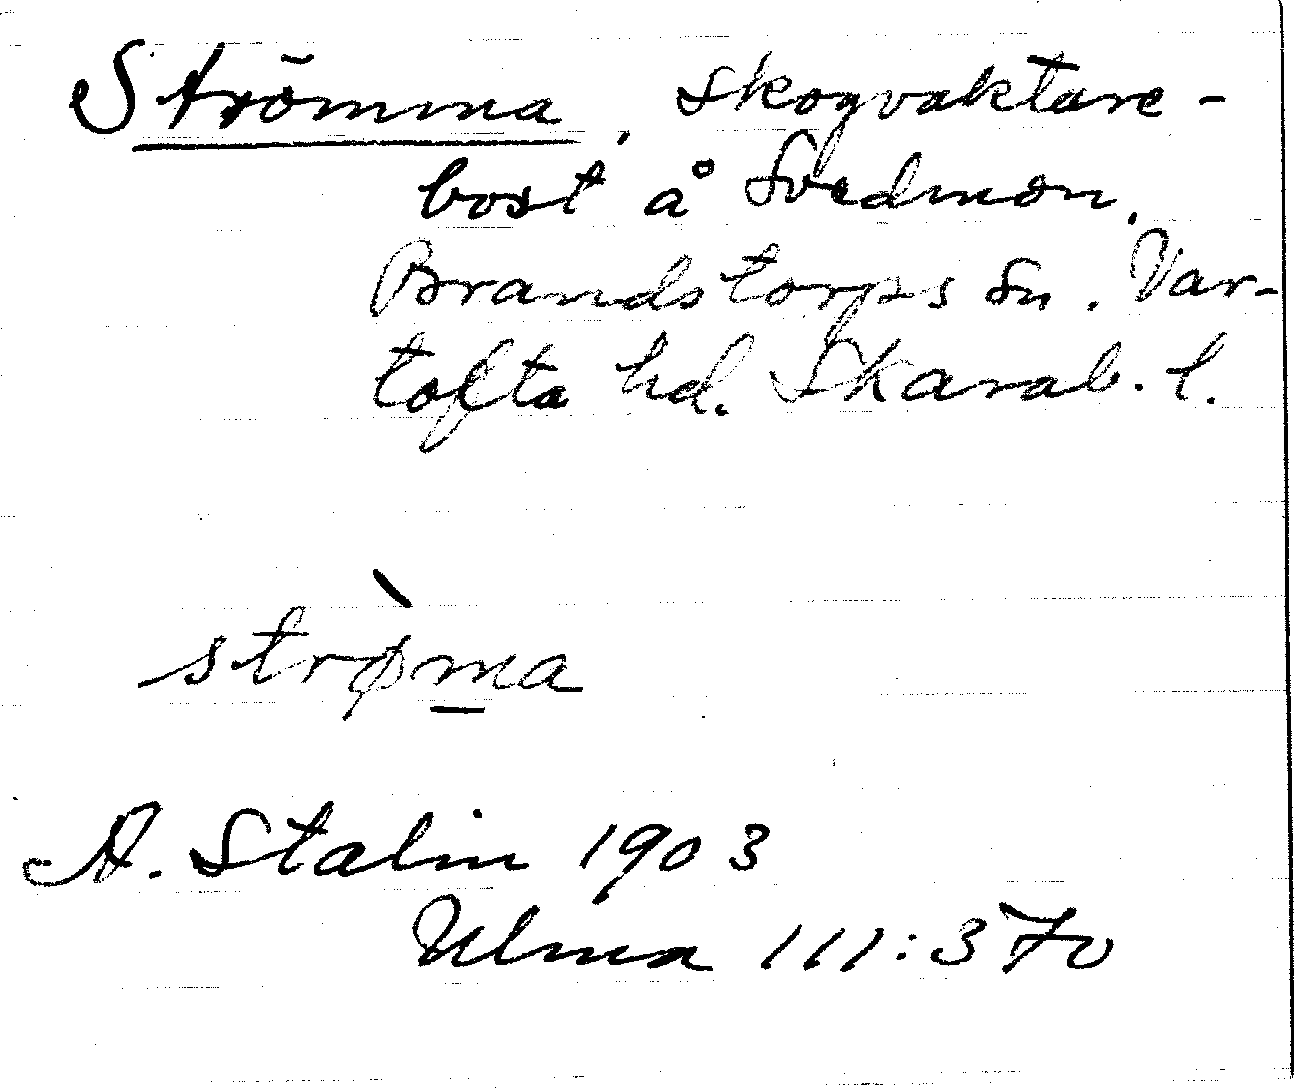 Strömma, Skogvaktare-
bost å Svedmon,
Brandstorps sn. Var-
tofta hd. Skarab. l.
strø̀m̲a
A. Stalin 1903
Ulma 111:370